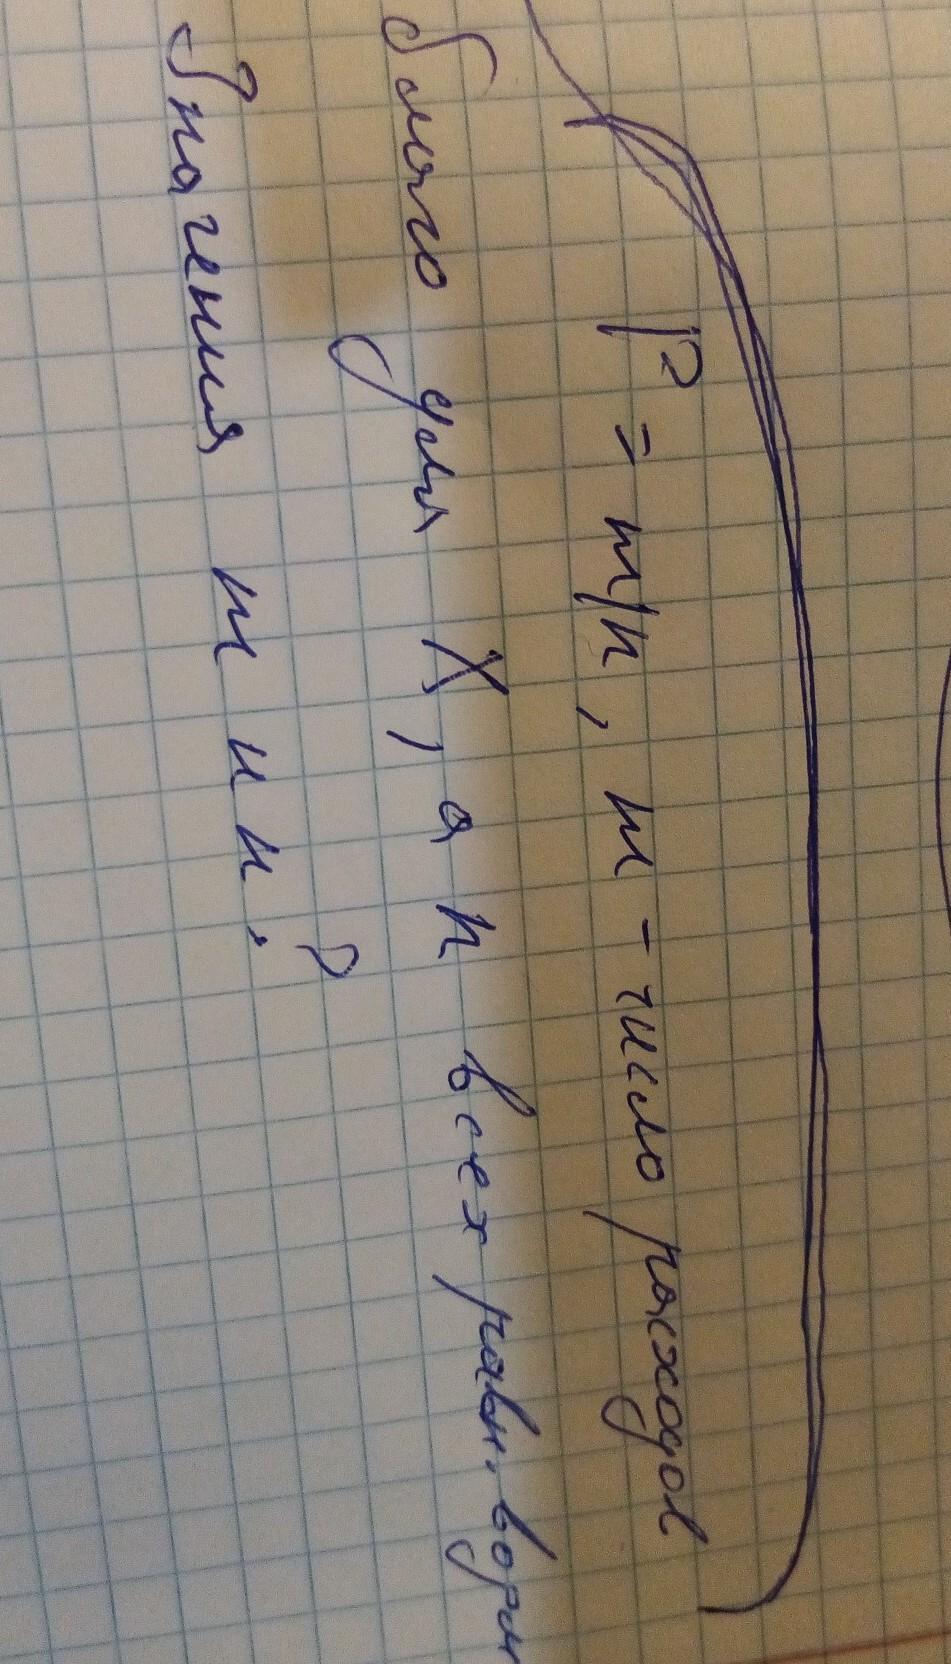 P = m/n, m - число расходов
благо для X, а n всех равн. возм
Значения m и n, ?